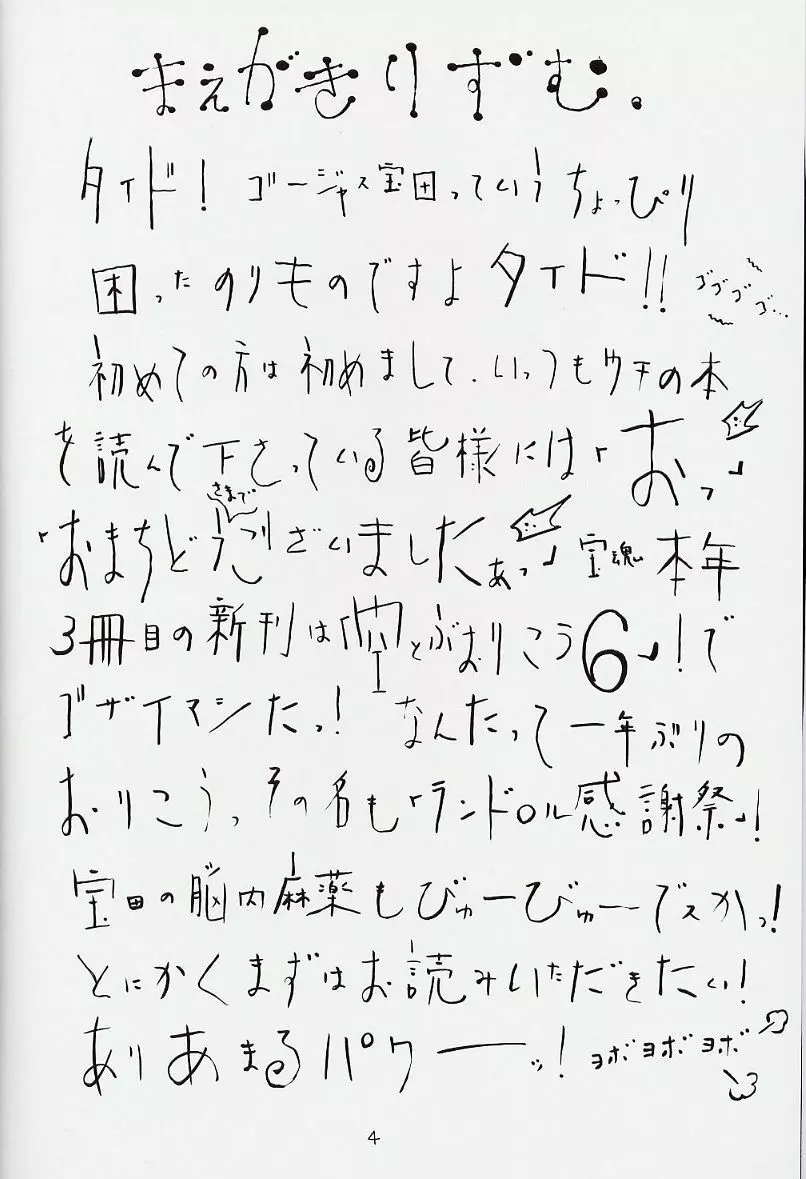 まえがきりずむ。
タイド！ゴージャス宝田っていうちょっぴり
困ったのりものですよタイド!! ゴゴゴゴ…
初めての方は初めまして、いっつもウチの本
を読んで下さっている皆様には「おっ」
さまで
「おまちどうございましたあっ」宝魂 本年
3冊目の新刊は「空とぶおりこう6」！で
ゴザイマシたっ！ なんたって一年ぶりの
おりこうっ、その名も「ランドル感謝祭」！
宝田の脳内麻薬もびゅーびゅーでスかっ！
とにかくまずはお読みいただきたい！
ありあまるパワーーッ！ ヨボヨボヨボ
4